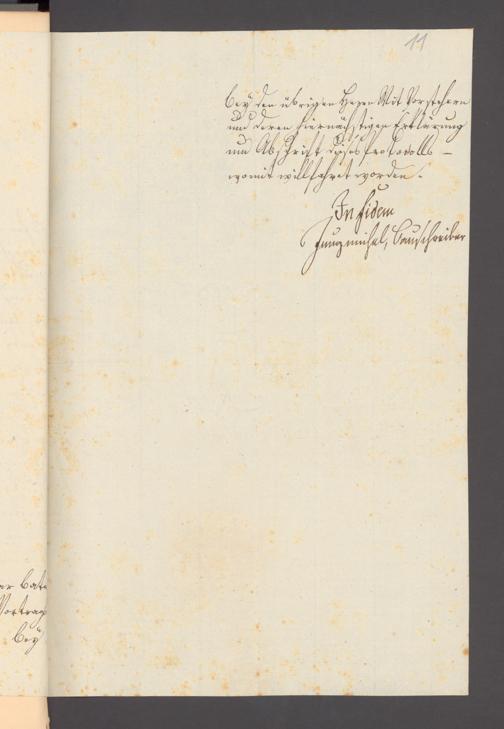 11
bey den übrigen Herrn Mit Vorstehern
und deren hiernächstigen Erklärung
um Abschrift dieses Protocolls —
womit willfahret worden.
In fidem
Jungmichel, Bauschreiber
bat
Vortrag
bey